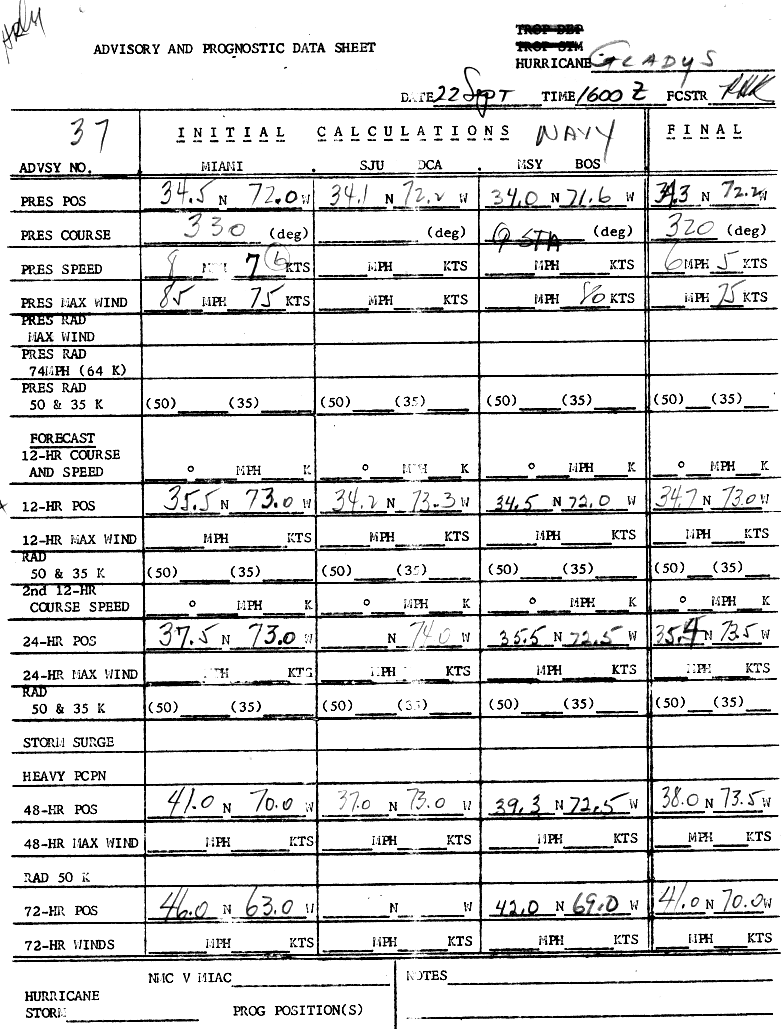 TROP DEP
ADVISORY AND PROGNOSTIC DATA SHEET TROP STM
HURRICANE GLADYS
DATE 22 SEPT TIME 1600 Z FCSTR
37 INITIAL CALCULATIONS NAVY FINAL
ADVSY NO. MIAMI . SJU DCA . MSY BOS
PRES POS 34.5 N 72.0 W 34.1 N 72.2 W 34.0 N 71.6 W 34.3 N 72.2 W
PRES COURSE 330 (deg) (deg) STA (deg) 320 (deg)
PRES SPEED 8 MPH 7 6 KTS MPH KTS MPH KTS 6 MPH 5 KTS
PRES MAX WIND 85 MPH 75 KTS MPH KTS MPH 80 KTS MPH 75 KTS
PRES RAD
MAX WIND
PRES RAD
74MPH (64 K)
PRES RAD
50 & 35 K (50) (35) (50) (35) (50) (35) (50) (35)
FORECAST
12-HR COURSE
AND SPEED ° MPH K ° MPH K ° MPH K ° MPH K
12-HR POS 35.5 N 73.0 W 34.2 N 73.3 W 34.5 N 72.0 W 34.7 N 73.0 W
12-HR MAX WIND MPH KTS MPH KTS MPH KTS MPH KTS
RAD
50 & 35 K (50) (35) (50) (35) (50) (35) (50) (35)
2nd 12-HR
COURSE SPEED ° MPH K ° MPH K ° MPH K ° MPH K
24-HR POS 37.5 N 73.0 W N 74.0 W 35.5 N 72.5 W 35.4 N 73.5 W
24-HR MAX WIND MPH KTS MPH KTS MPH KTS MPH KTS
RAD
50 & 35 K (50) (35) (50) (35) (50) (35) (50) (35)
STORM SURGE
HEAVY PCPN
48-HR POS 41.0 N 70.0 W 37.0 N 73.0 W 39.3 N 72.5 W 38.0 N 73.5 W
48-HR MAX WIND MPH KTS MPH KTS MPH KTS MPH KTS
RAD 50 K
72-HR POS 46.0 N 63.0 W N W 42.0 N 69.0 W 41.0 N 70.0 W
72-HR WINDS MPH KTS MPH KTS MPH KTS MPH KTS
NMC V MIAC NOTES
HURRICANE
STORM PROG POSITION(S)